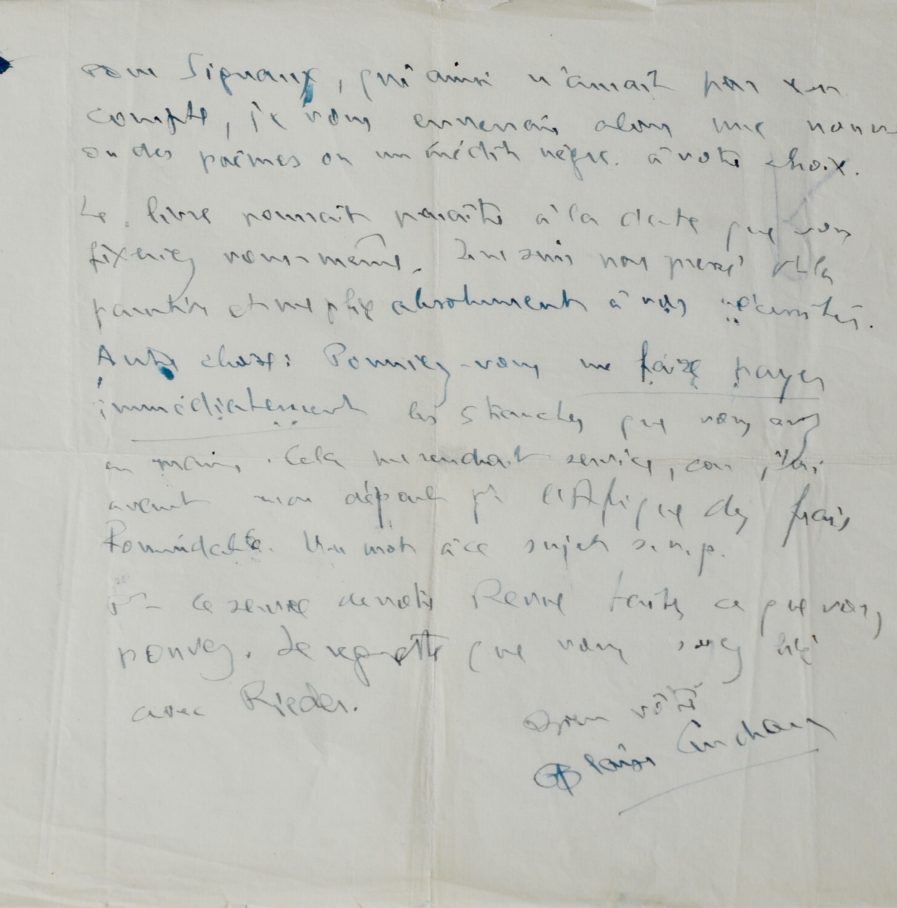 pour Signaux, qui ainsi n'aurait pas son
compte, je vous enverrais alors une nouv
ou des poèmes ou un inédit nègre. à votre choix.
Le livre pourrait paraître à la date que vous
fixeriez vous-même. Je ne suis pas pressé de la
parution et me plie absolument à vos nécessités.
Autre chose: Pourriez-vous me faire payer
immédiatement les stanches que vous avez
en main. Cela me rendrait service, car j'ai
avant mon départ pr l'Afrique des frais
Formidable. Un mot à ce sujet s.v.p.
Pr le service de votre Revue faites ce que vous
pouvez. Je regrette que vous soyez lié
avec Rieder.
bien vôtre
Blaise Cendrars